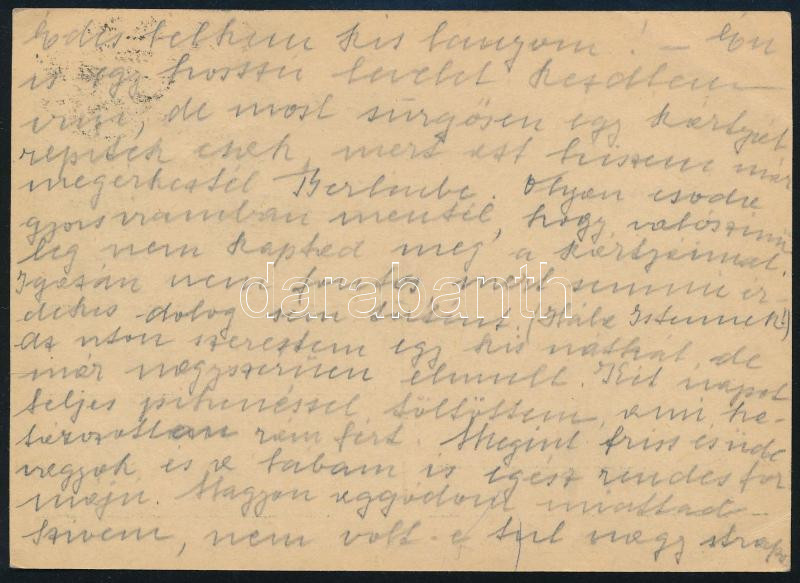 Édes lelkem kis lányom! – Én
is egy hosszú levelet kezdtem
irni, de most sürgősen egy kártyát
repitek csak, mert azt hiszem már
megérkeztél Berlinbe. Olyan csoda
gyors iramban mentél, hogy valószinü
leg nem kaptad meg a kártyáimat.
Igazán nem fontos, mert semmi ér-
dekes dolog sem történt. (Hála Istennek!)
az uton szereztem egy kis náthát, de
már nagyszerüen elmult. Két napot
teljes pihenéssel töltöttem, ami ha-
tározottan rám fért. Megint friss és üde
vagyok és a lábam is egész rendes for
máju. Nagyon aggódom miattad
Szivem, nem volt-e tul nagy strapa
darabanth